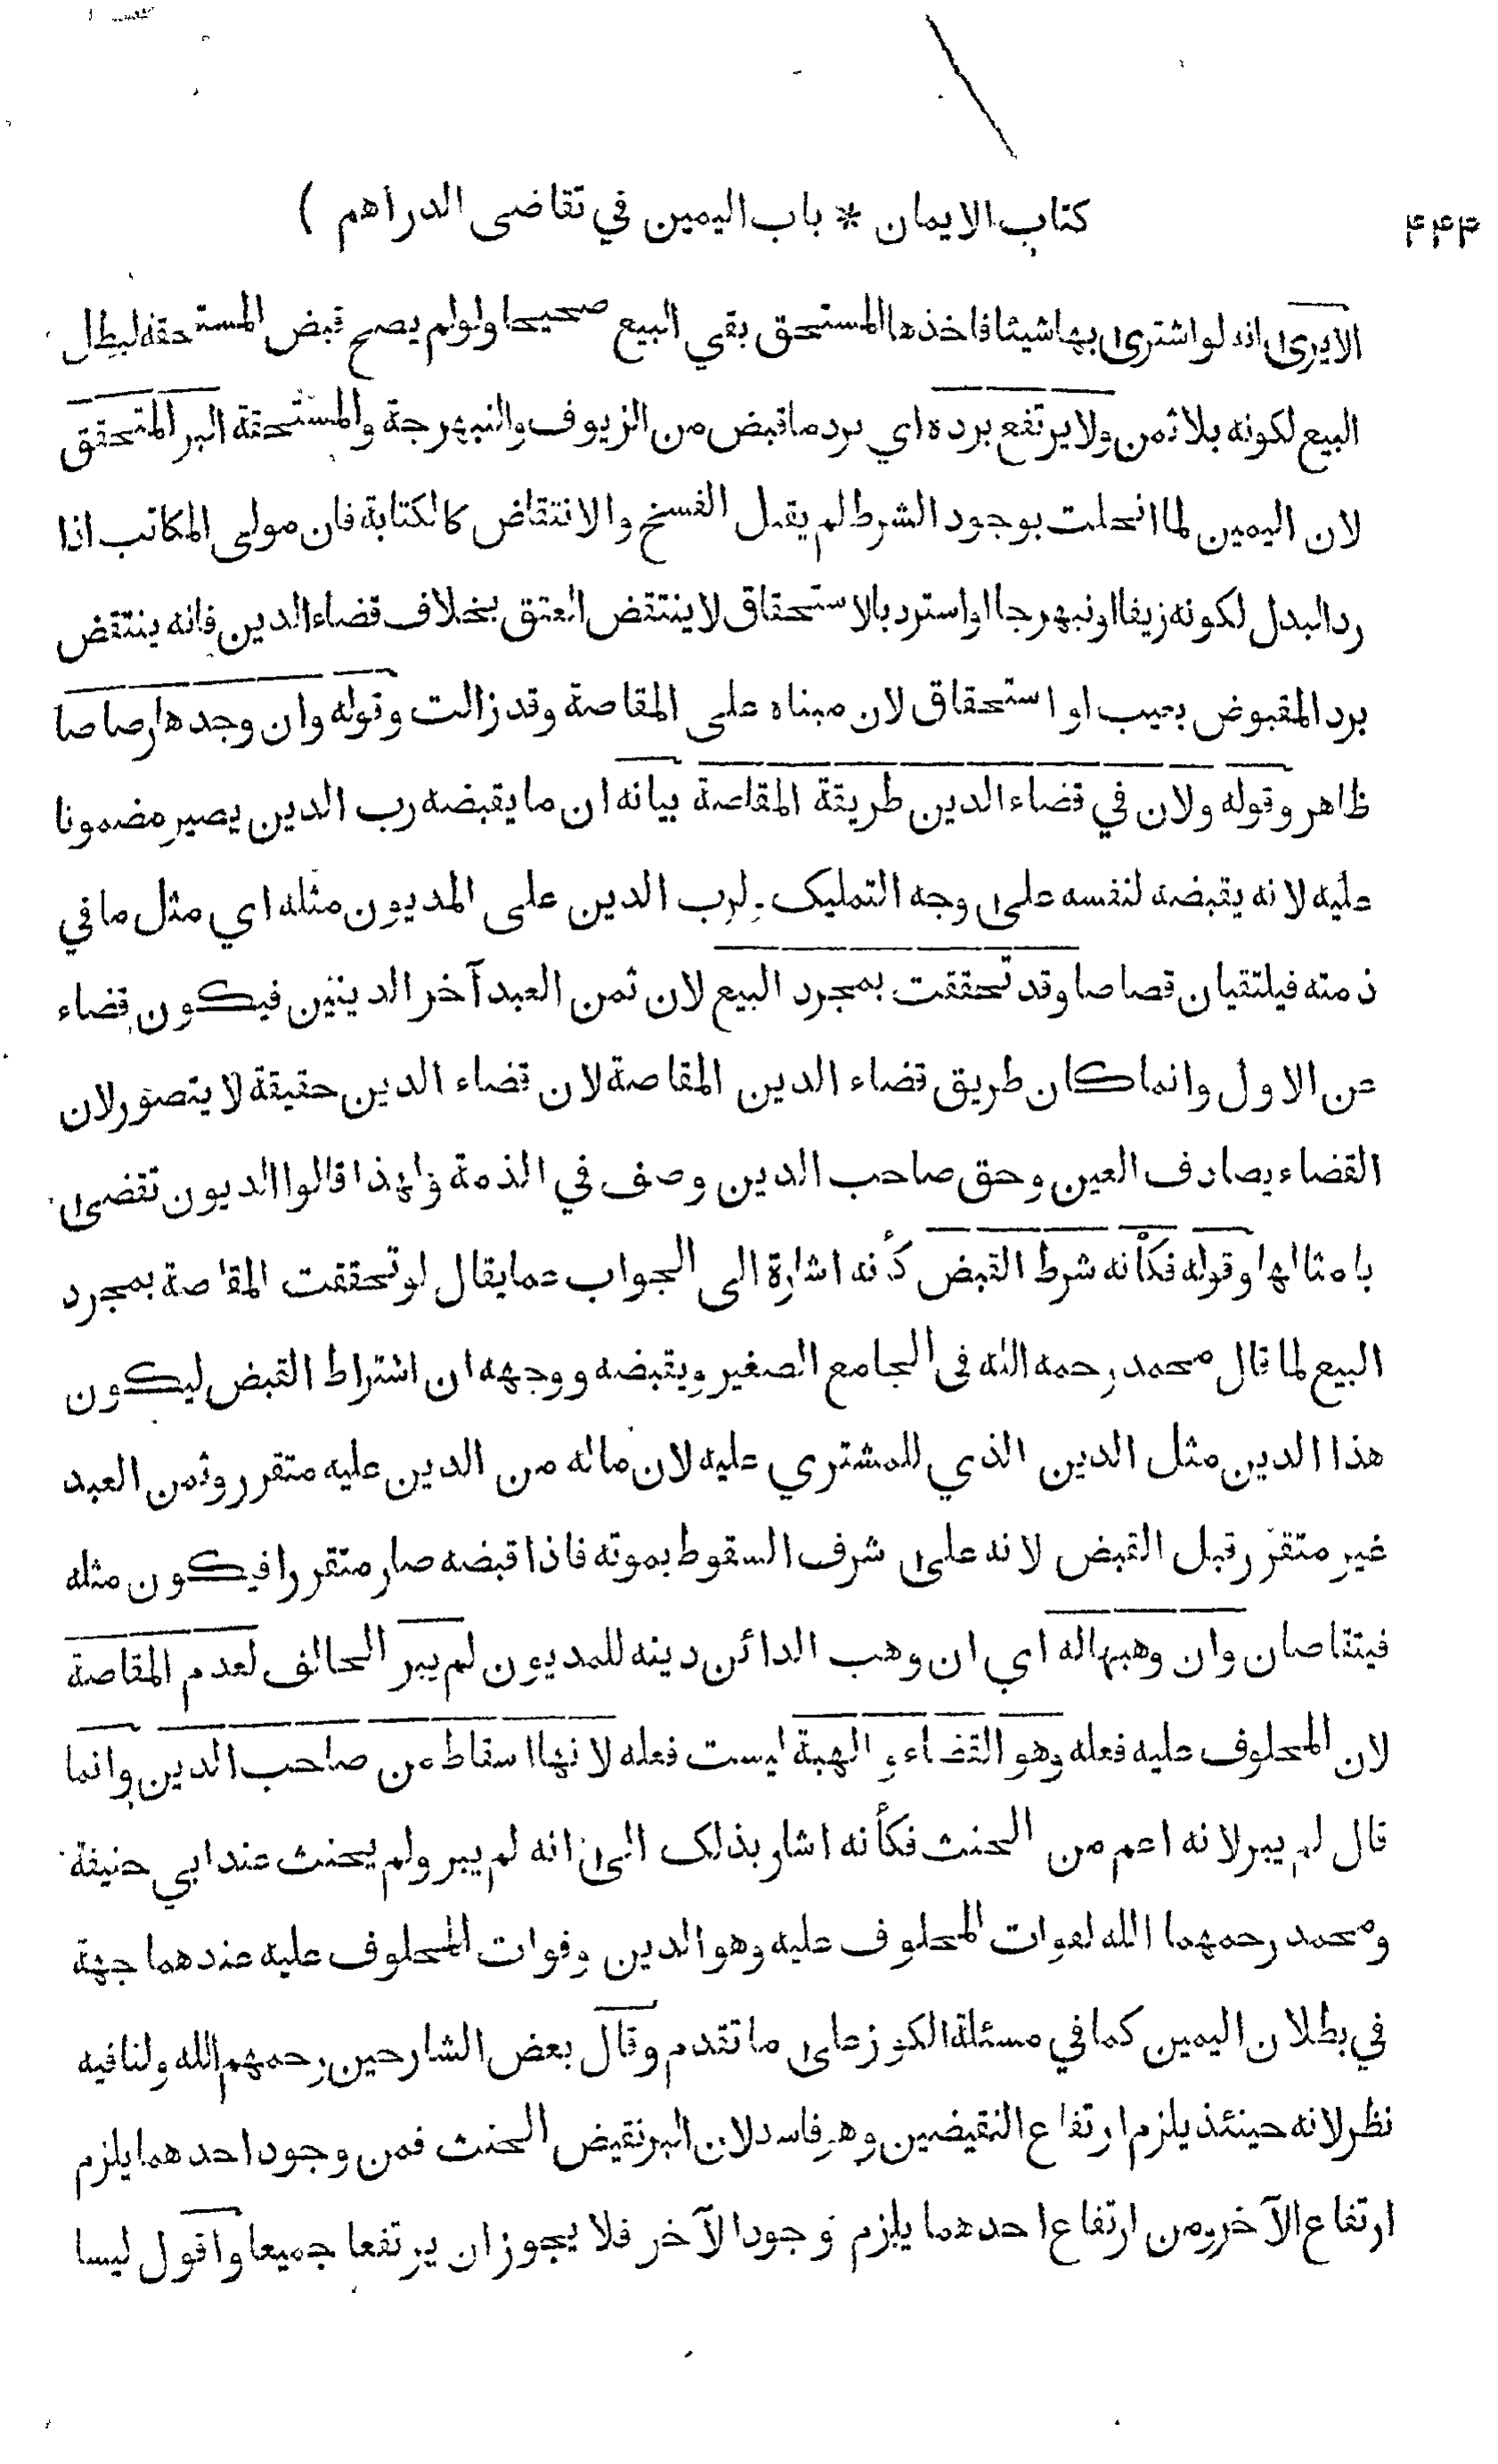 ۴۴۳
كتاب الايمان * باب اليمين في تقاضى الدراهم )
الايرى انه لواشترى بها شيئا فاخذها المستحق بقي البيع صحيحا ولولم يصح قبض المستحقة لبطل
البيع لكونه بلا ثمن ولا يرتفع برده اي برد ما قبض من الزيوف والنبهرجة والمستحقة البر المتحقق
لان اليمين لما انحلت بوجود الشرط لم يقبل الفسخ والانتقاض كالكتابة فان مولى المكاتب اذا
رد البدل لكونه زيفا او نبهرجا او استرد بالاستحقاق لا ينتقض العتق بخلاف قضاء الدين فانه ينتقض
برد المقبوض بعيب او استحقاق لان مبناه على المقاصة وقد زالت وقوله وان وجدها رصاصا
ظاهر وقوله ولان في قضاء الدين طريقة المقاصة بيانه ان ما يقبضه رب الدين يصير مضمونا
عليه لانه يقبضه لنفسه على وجه التمليك ولرب الدين على المديون مثله اي مثل ما في
ذمته فيلتقيان قصاصا وقد تحققت بمجرد البيع لان ثمن العبد آخر الدينين فيكون قضاء
عن الاول وانما كان طريق قضاء الدين المقاصة لان قضاء الدين حقيقة لا يتصور لان
القضاء يصادف العين وحق صاحب الدين وصف في الذمة ولهذا قالوا الديون تقضى
بامثالها وقوله فكأنه شرط القبض كأنه اشارة الى الجواب عما يقال لو تحققت المقاصة بمجرد
البيع لما قال محمد رحمه الله في الجامع الصغير ويقبضه ووجهه ان اشتراط القبض ليكون
هذا الدين مثل الدين الذي للمشتري عليه لان ماله من الدين عليه متقرر وثمن العبد
غير متقرر قبل القبض لانه على شرف السقوط بموته فاذا قبضه صار متقررا فيكون مثله
فيتقاصان وان وهبها له اي ان وهب الدائن دينه للمديون لم يبر الحالف لعدم المقاصة
لان المحلوف عليه فعله وهو القضاء والهبة ليست فعله لانها اسقاط من صاحب الدين وانما
قال لم يبر لانه اعم من الحنث فكأنه اشار بذلك الى انه لم يبر ولم يحنث عند ابي حنيفة
ومحمد رحمهما الله لفوات المحلوف عليه وهو الدين وفوات المحلوف عليه عندهما جهة
في بطلان اليمين كما في مسئلة الكوز على ما تقدم وقال بعض الشارحين رحمهم الله ولنا فيه
نظر لانه حينئذ يلزم ارتفاع النقيضين وهو فاسد لان البر نقيض الحنث فمن وجود احدهما يلزم
ارتفاع الآخر ومن ارتفاع احدهما يلزم وجود الآخر فلا يجوز ان يرتفعا جميعا واقول ليسا